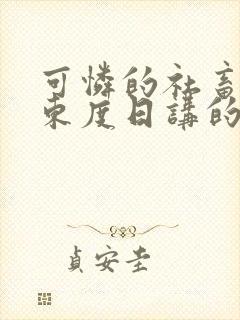 可憐的社畜
東度日講的
貞安圭